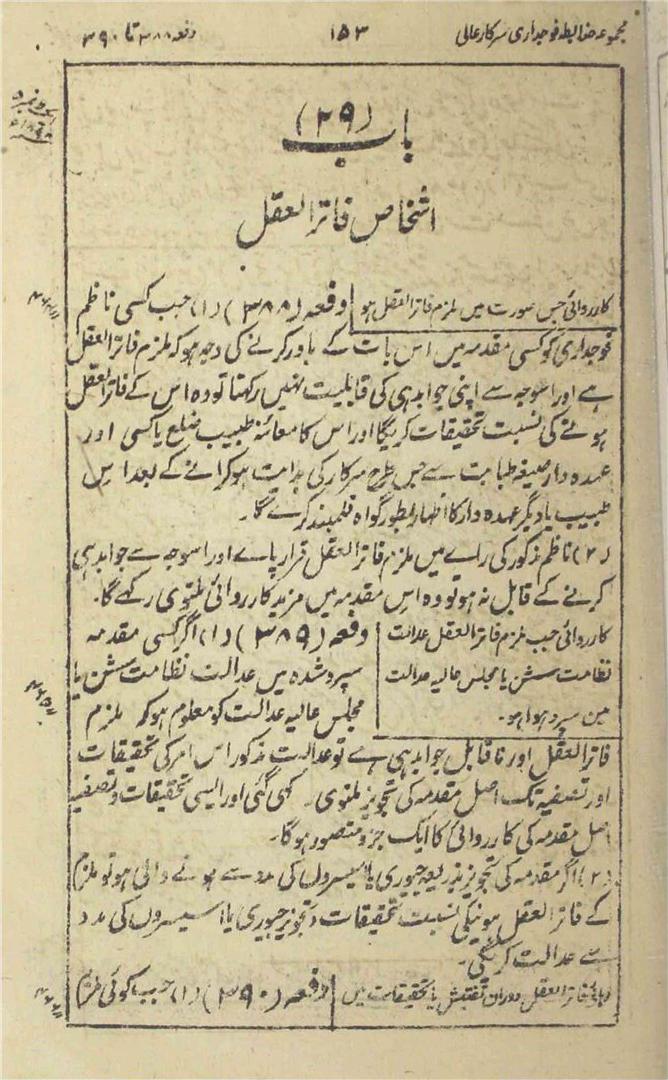 مجموعہ ضابطہ فوجداری سرکار عالی ۱۵۳ دفعہ ۳۸۸ تا ۳۹۰
باب (۲۹)
اشخاص فاترالعقل
کارروائی جس صورت میں ملزم فاترالعقل ہو
دفعہ (۳۸۸) (۱) جب کسی ناظم
فوجداری کو کسی مقدمہ میں اس بات کے باور کرنے کی وجہ ہو کہ ملزم فاترالعقل
ہے اور اسوجہ سے اپنی جوابدہی کی قابلیت نہیں رکھتا تو وہ اس کے فاترالعقل
ہونے کی نسبت تحقیقات کریگا اور اس کا معائنہ طبیب ضلع یا کسی اور
عہدہ دار صیغہ طبابت سے جس طرح سرکار کی ہدایت ہو کرانے کے بعد اس
طبیب یا دیگر عہدہ دار کا اظہار بطور گواہ قلمبند کرے گا۔
(۲) ناظم مذکور کی راے میں ملزم فاترالعقل قرار پاے اور اسوجہ سے جوابدہی
کرنے کے قابل نہ ہو تو وہ اس مقدمہ میں مزید کارروائی ملتوی رکھے گا۔
کارروائی جب ملزم فاترالعقل عدالت
نظامت سشن یا مجلس عالیہ عدالت
مین سپرد ہوا ہو۔
دفعہ (۳۸۹) (۱) اگر کسی مقدمہ
سپرد شدہ میں عدالت نظامت سشن یا
مجلس عالیہ عدالت کو معلوم ہو کہ ملزم
فاترالعقل اور ناقابل جوابدہی ہے تو عدالت مذکور اس امر کی تحقیقات
اور تصفیہ تک اصل مقدمہ کی تجویز ملتوی رکھی گئی اور ایسی تحقیقات و تصفیہ
اصل مقدمہ کی کارروائی کا ایک جزو متصور ہوگا۔
(۲) اگر مقدمہ کی تجویز بذریعہ جیوری یا اسیسروں کی مدد سے ہونے والی ہو تو ملزم
کے فاترالعقل ہونیکی نسبت تحقیقات و تجویز جیوری یا اسیسروں کی مدد
سے عدالت کریگی۔
رہائی فاترالعقل دوران تفتیش یا تحقیقات میں
دفعہ (۳۹۰) (۱) جب کوئی ملزم